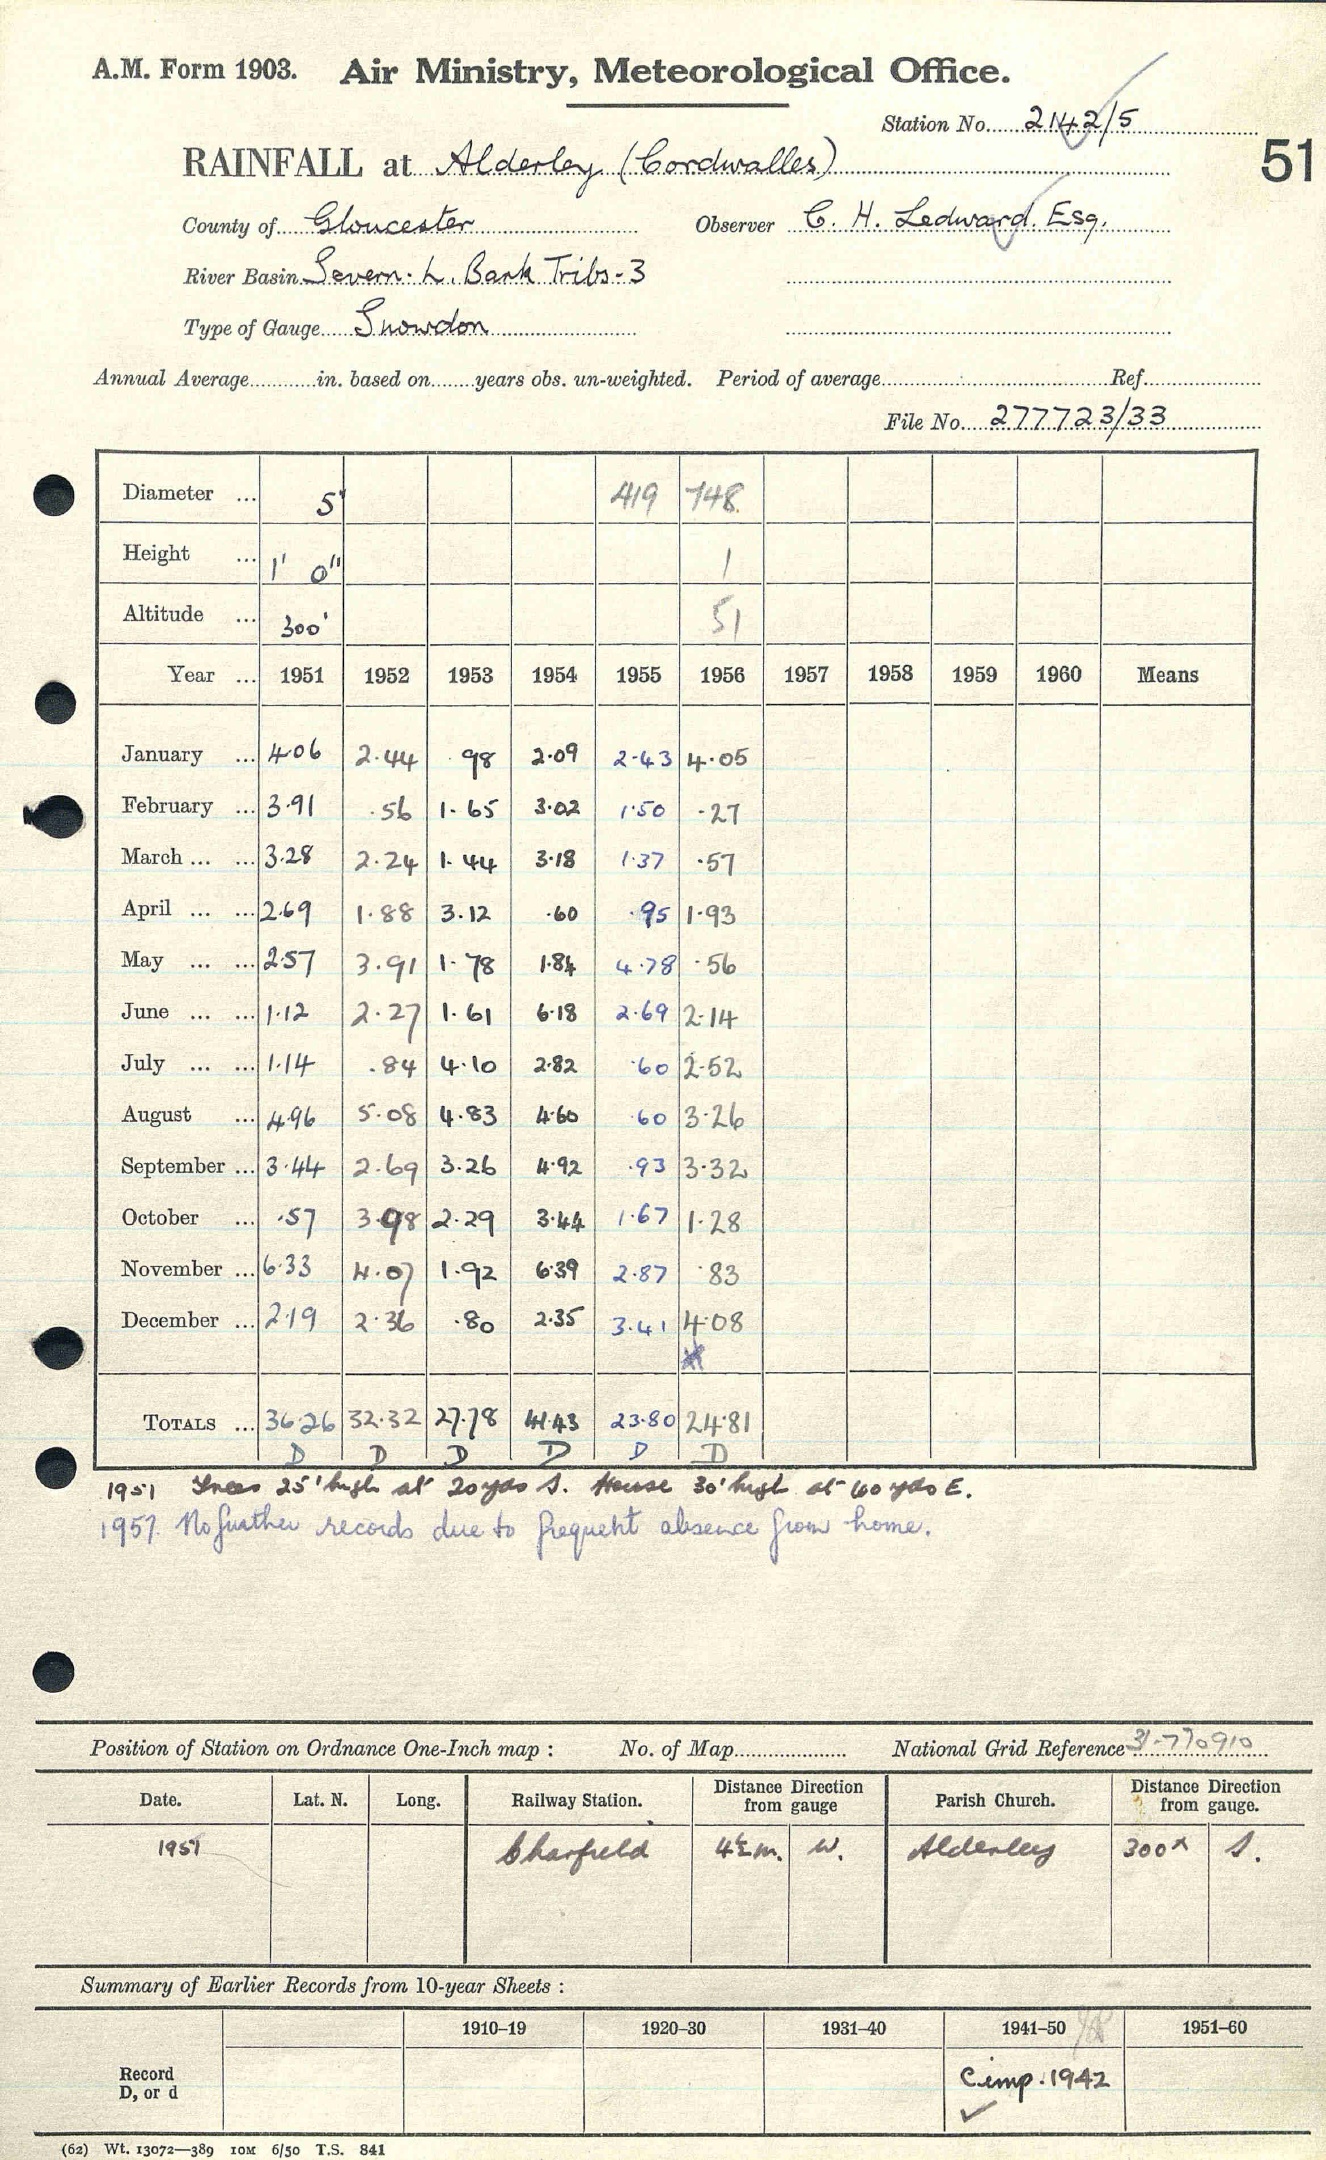 A.M. Form 1903. Air Ministry, Meteorological Office.
Station No. 2142/5
51
RAINFALL at Alderley (Cordwalles)
County of Gloucester Observer C. H. Ledward. Esq.
River Basin Severn. L. Bank Tribs-3
Type of Gauge Snowdon
Annual Average in. based on years obs. un-weighted. Period of average Ref.
File No. 277723/33
Diameter ... 5" 419 748
Height ... 1' 0" 1
Altitude ... 300' 51
Year ... 1951 1952 1953 1954 1955 1956 1957 1958 1959 1960 Means
January ... 4.06 2.44 .98 2.09 2.43 4.05
February ... 3.91 .56 1.65 3.02 1.50 .27
March ... ... 3.28 2.24 1.44 3.18 1.37 .57
April ... ... 2.69 1.88 3.12 .60 .95 1.93
May ... ... 2.57 3.91 1.78 1.84 4.78 .56
June ... ... 1.12 2.27 1.61 6.18 2.69 2.14
July ... ... 1.14 .84 4.10 2.82 .60 2.52
August ... 4.96 5.08 4.83 4.60 .60 3.26
September ... 3.44 2.69 3.26 4.92 .93 3.32
October ... .57 3.98 2.29 3.44 1.67 1.28
November ... 6.33 4.07 1.92 6.39 2.87 .83
December ... 2.19 2.36 .80 2.35 3.41 4.08
TOTALS ... 36.26 32.32 27.78 41.43 23.80 24.81
D D D D D D
1951 Trees 25' high at 20 yds S. House 30' high at 60 yds E.
1957. No further records due to frequent absence from home.
Position of Station on Ordnance One-Inch map : No. of Map National Grid Reference 31-770910
Date. Lat. N. Long. Railway Station. Distance Direction from gauge Parish Church. Distance Direction from gauge.
1951 Charfield 4½m. W. Alderley 300x S.
Summary of Earlier Records from 10-year Sheets :
1910-19 1920-30 1931-40 1941-50 1951-60
Record D, or d
C imp. 1942
(62) Wt. 13072—389 10M 6/50 T.S. 841